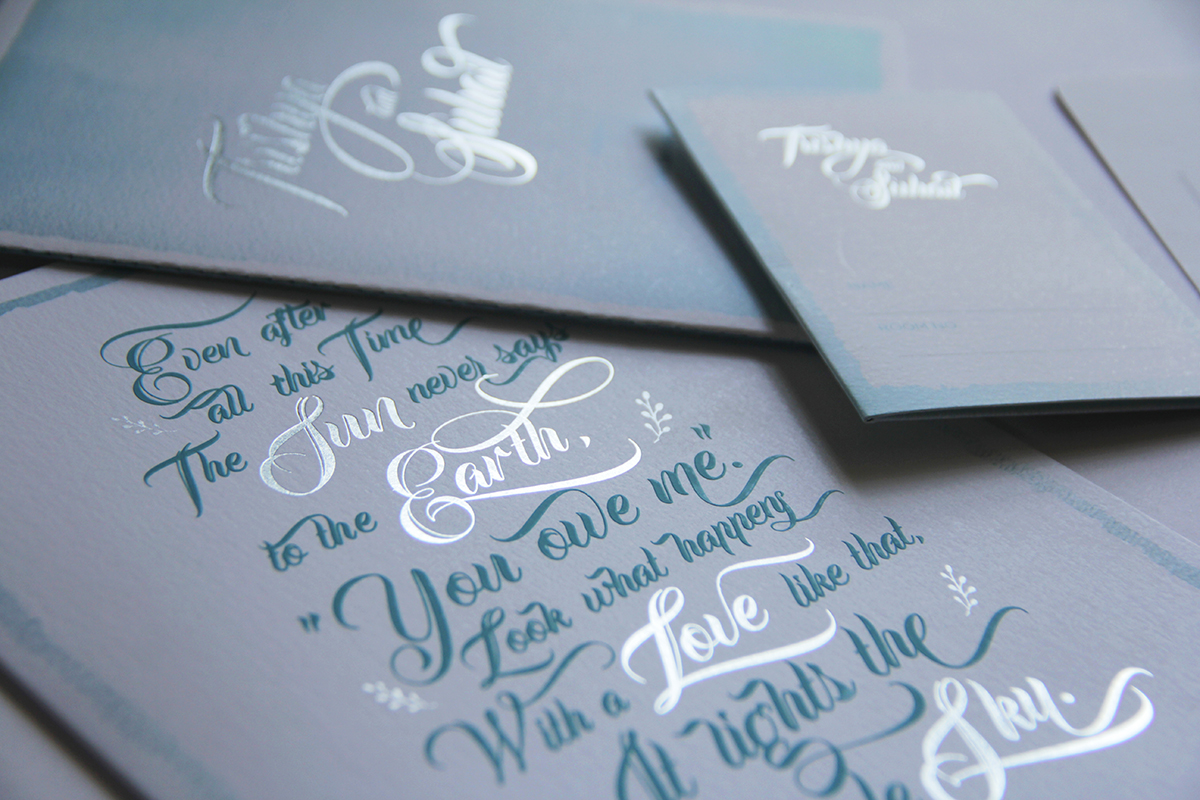 Tushya
Tushya
Even after
all this Time
The Sun never says
to the Earth,
"You owe me".
Look what happens
With a Love like that,
It lights the
Sky.